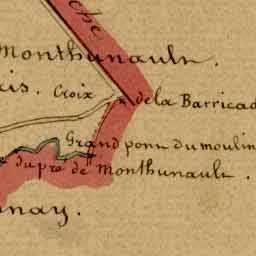 che
Monthunault.
is. Croix de la Barricad
Grand pont du moulin
du pré de Monthunault.
nay.